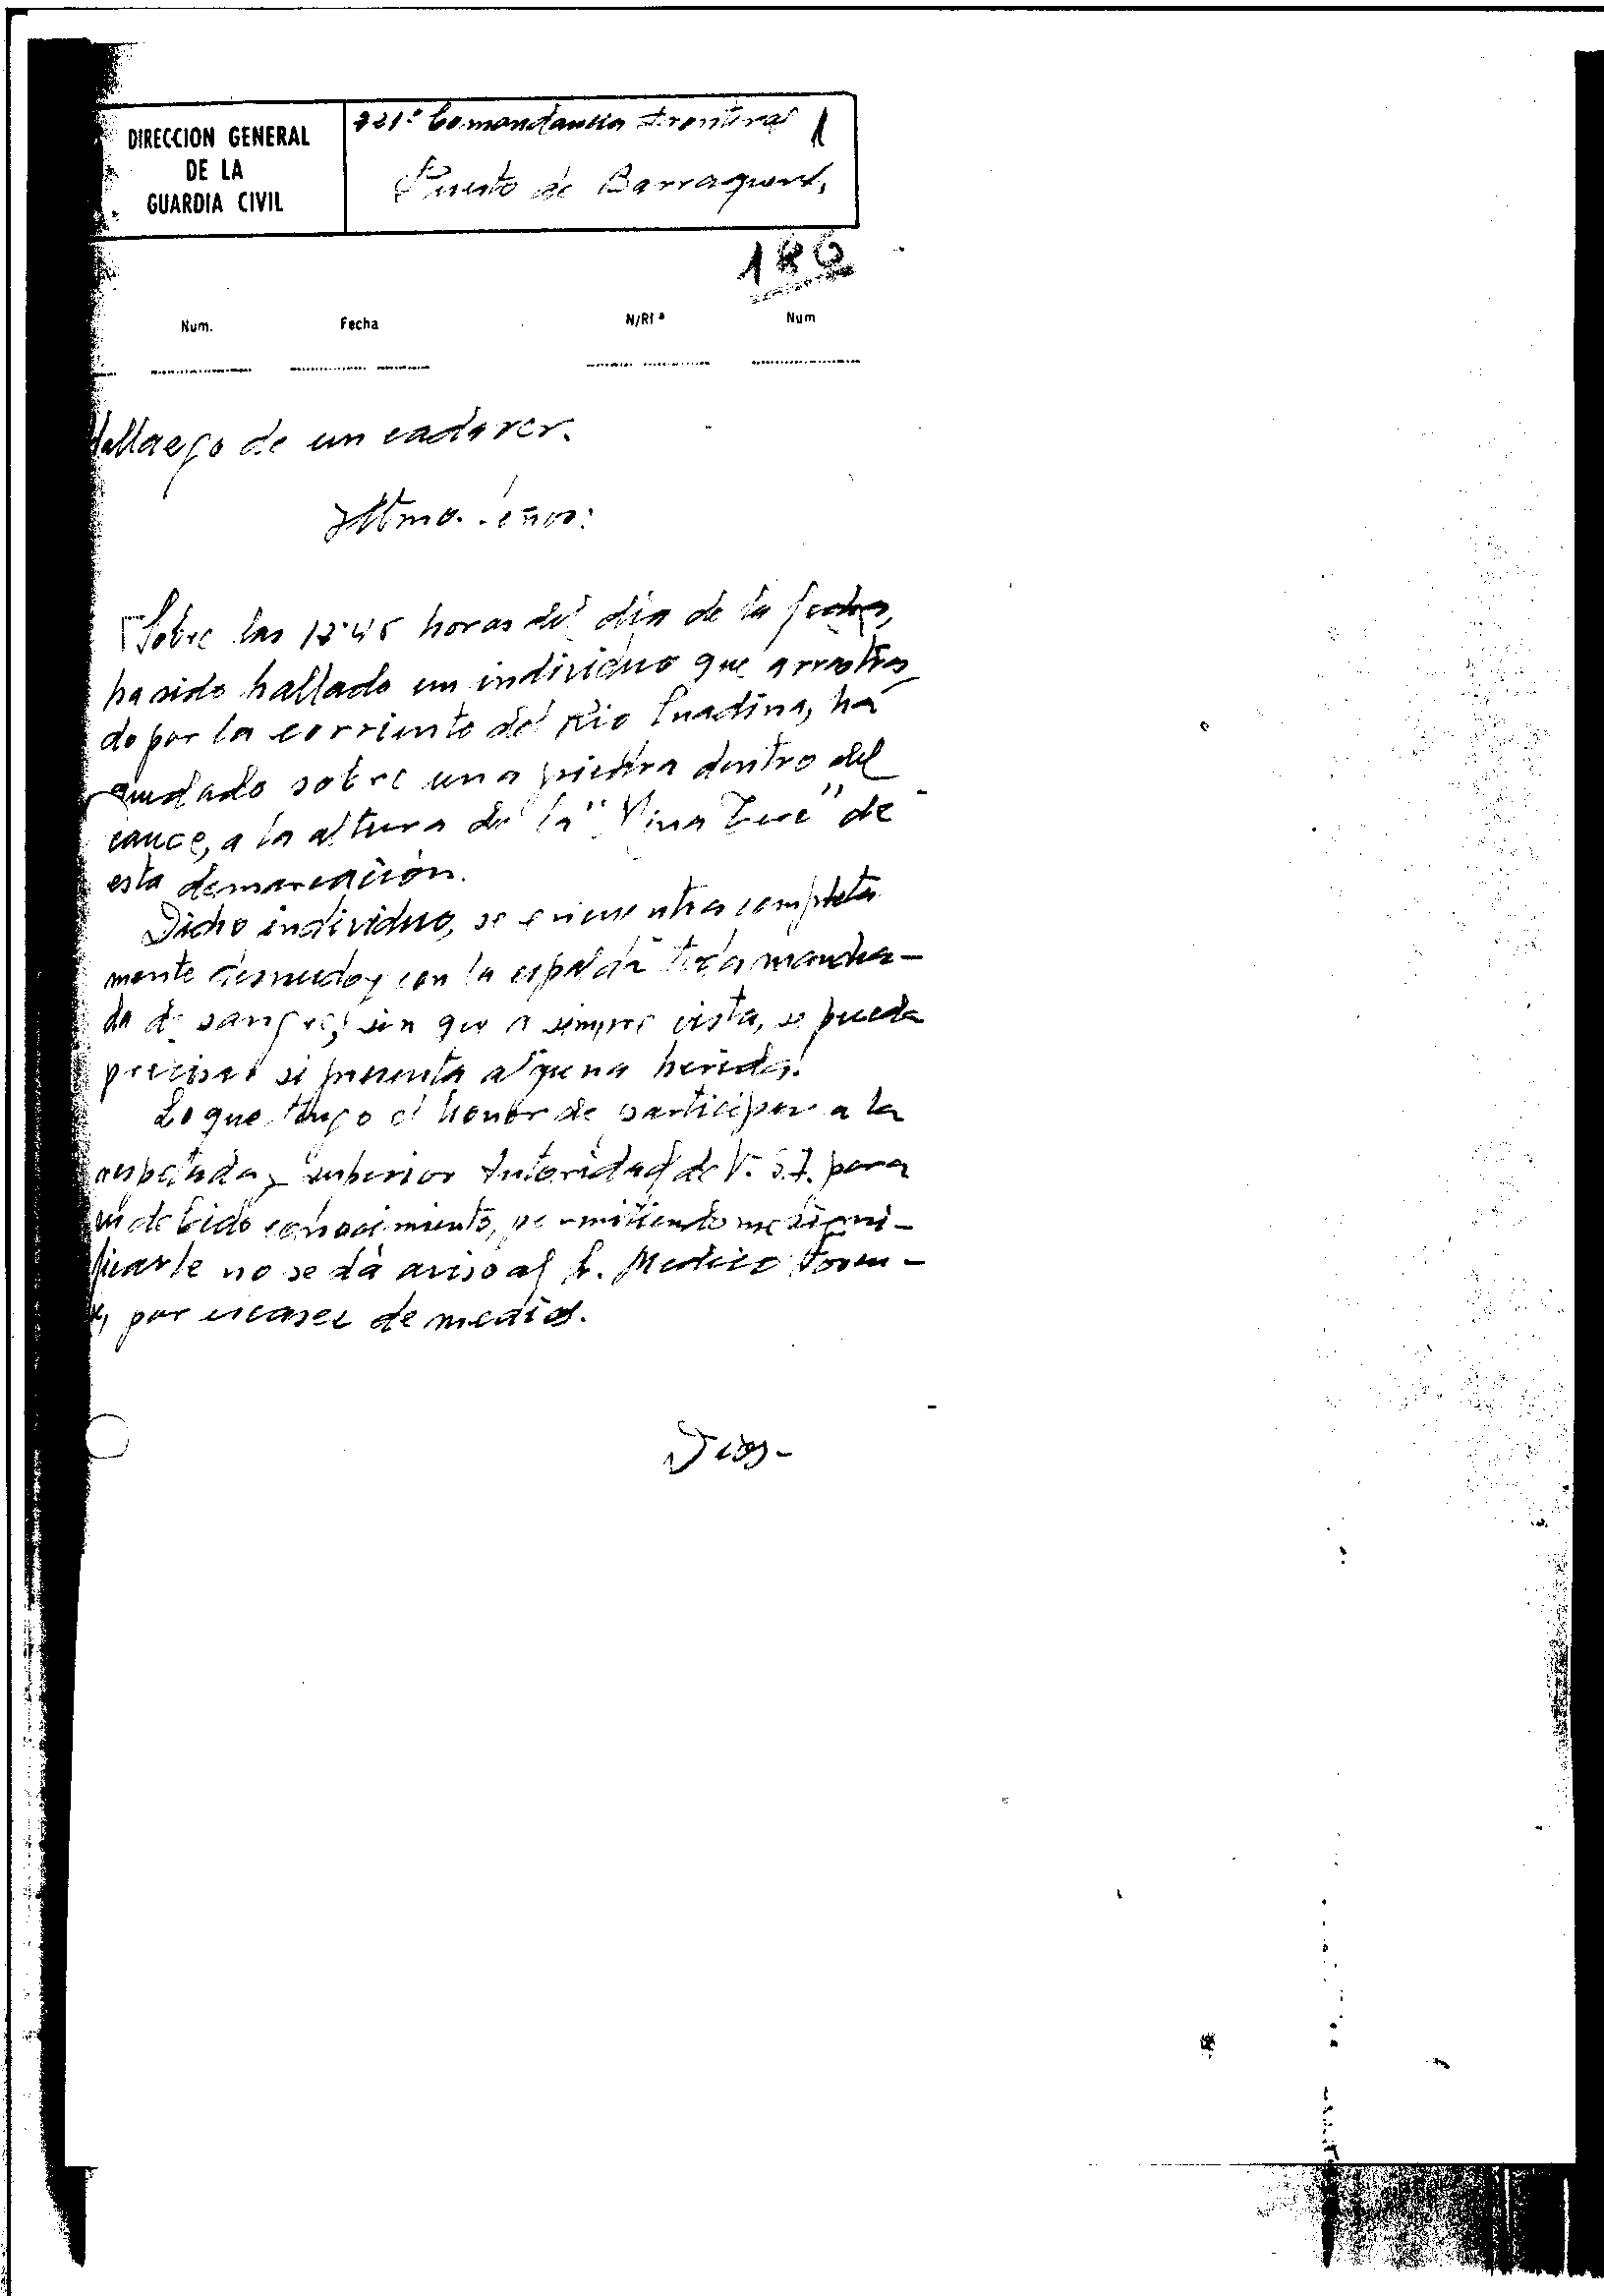 DIRECCION GENERAL
DE LA
GUARDIA CIVIL
721ª Comandancia Fronteras
Puesto de
Num. Fecha N/Rfª Num
Hallazgo de un cadaver.
Iltmo. Señor:
Sobre las horas del dia de la fecha,
ha sido hallado un individuo que arrastra
do por la corriente del Rio Guadina, há
quedado sobre una piedra dentro del
cauce, a la altura de la "Mina Tere" de
esta demarcación.
Dicho individuo, se encuentra completa
mente desnudo y con la espalda toda mancha-
da de sangre, sin que a simple vista, se pueda
precisar si presenta alguna herida.
Lo que tengo el honor de participar a la
respetada y superior Autoridad de V. S.I. para
su debido conocimiento, permitiendome signi-
ficarle no se dá aviso al Sr. Medico Foren-
se, por escasez de medios.
Dios-